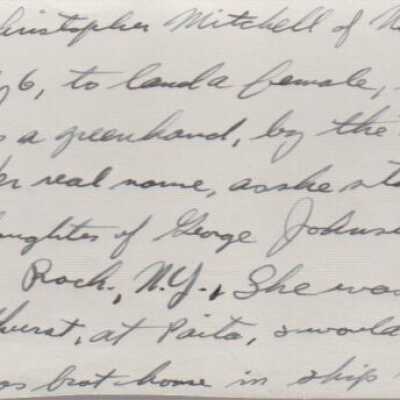 hristopher Mitchell of N
6, to land a female,
a greenhand, by the
er real name, as she sta
aughter of George Johnso
Roch., N.Y., She was
hurst, at Paita, & would
as brot home in ship